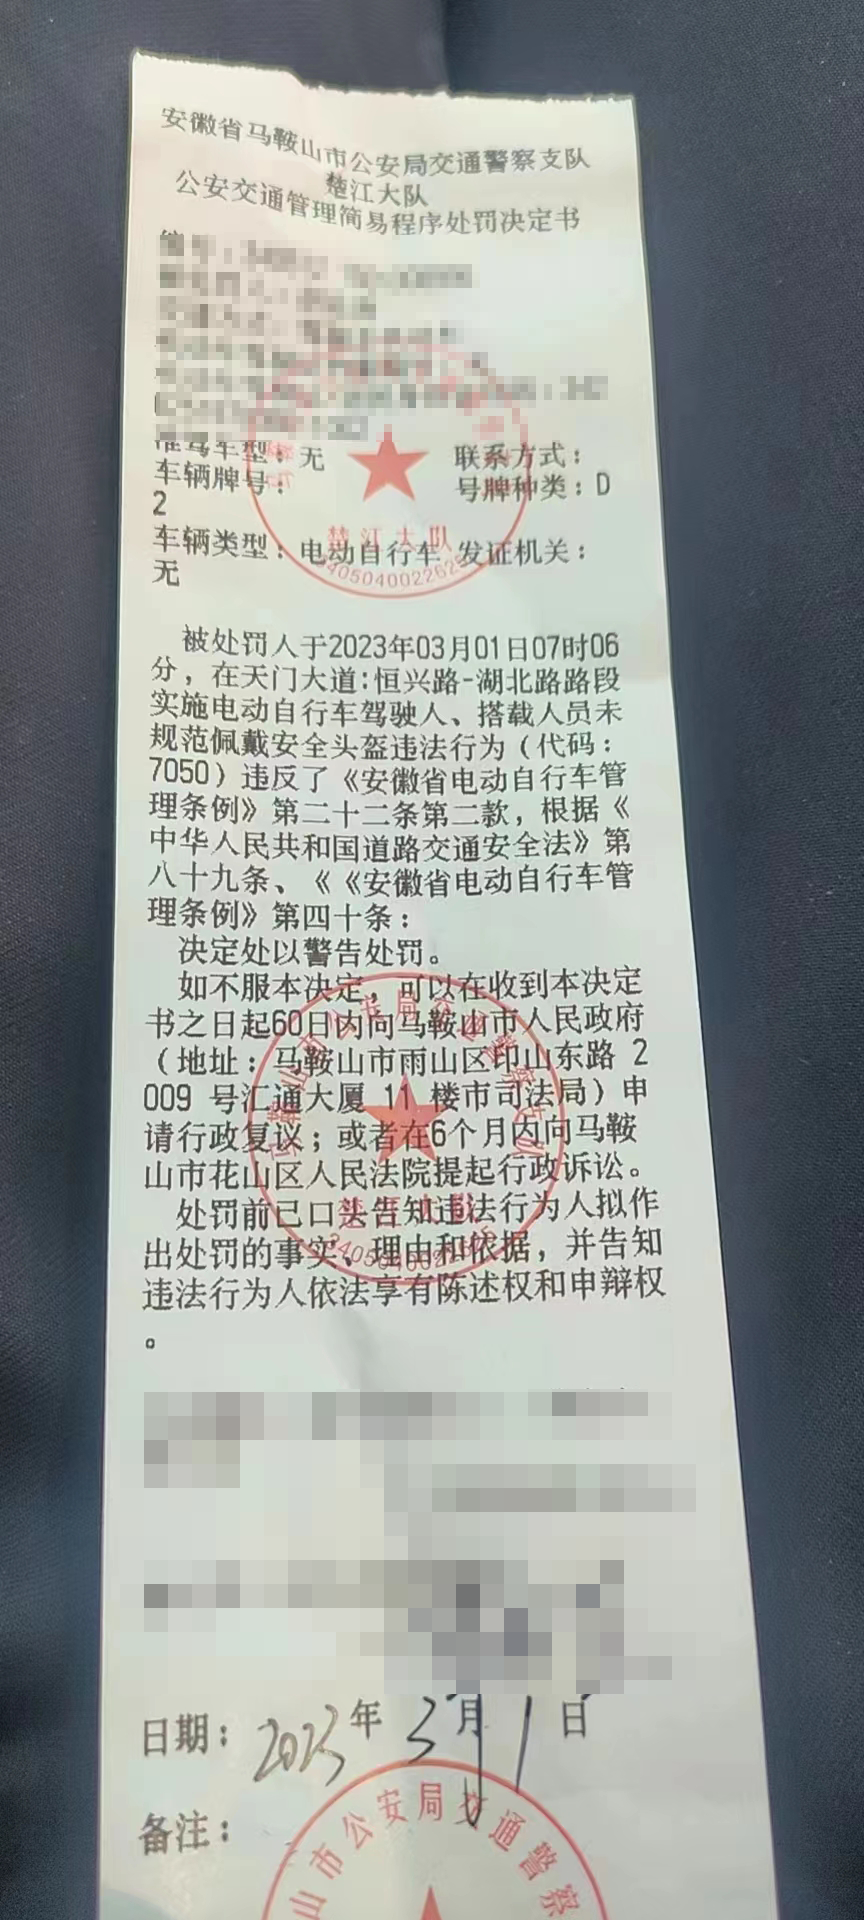 安徽省马鞍山市公安局交通警察支队
楚江大队
公安交通管理简易程序处罚决定书
准驾车型：无 联系方式：
车辆牌号： 号牌种类：D
2
车辆类型：电动自行车 发证机关：
无
被处罚人于2023年03月01日07时06
分，在天门大道:恒兴路-湖北路路段
实施电动自行车驾驶人、搭载人员未
规范佩戴安全头盔违法行为（代码：
7050）违反了《安徽省电动自行车管
理条例》第二十二条第二款，根据《
中华人民共和国道路交通安全法》第
八十九条、《《安徽省电动自行车管
理条例》第四十条：
决定处以警告处罚。
如不服本决定，可以在收到本决定
书之日起60日内向马鞍山市人民政府
（地址：马鞍山市雨山区印山东路 2
009 号汇通大厦 11 楼市司法局）申
请行政复议；或者在6个月内向马鞍
山市花山区人民法院提起行政诉讼。
处罚前已口头告知违法行为人拟作
出处罚的事实、理由和依据，并告知
违法行为人依法享有陈述权和申辩权
。
日期：2023年3月1日
备注：
楚江大队
山市公安局交通警察支队
楚江大队
山市公安局交通警察